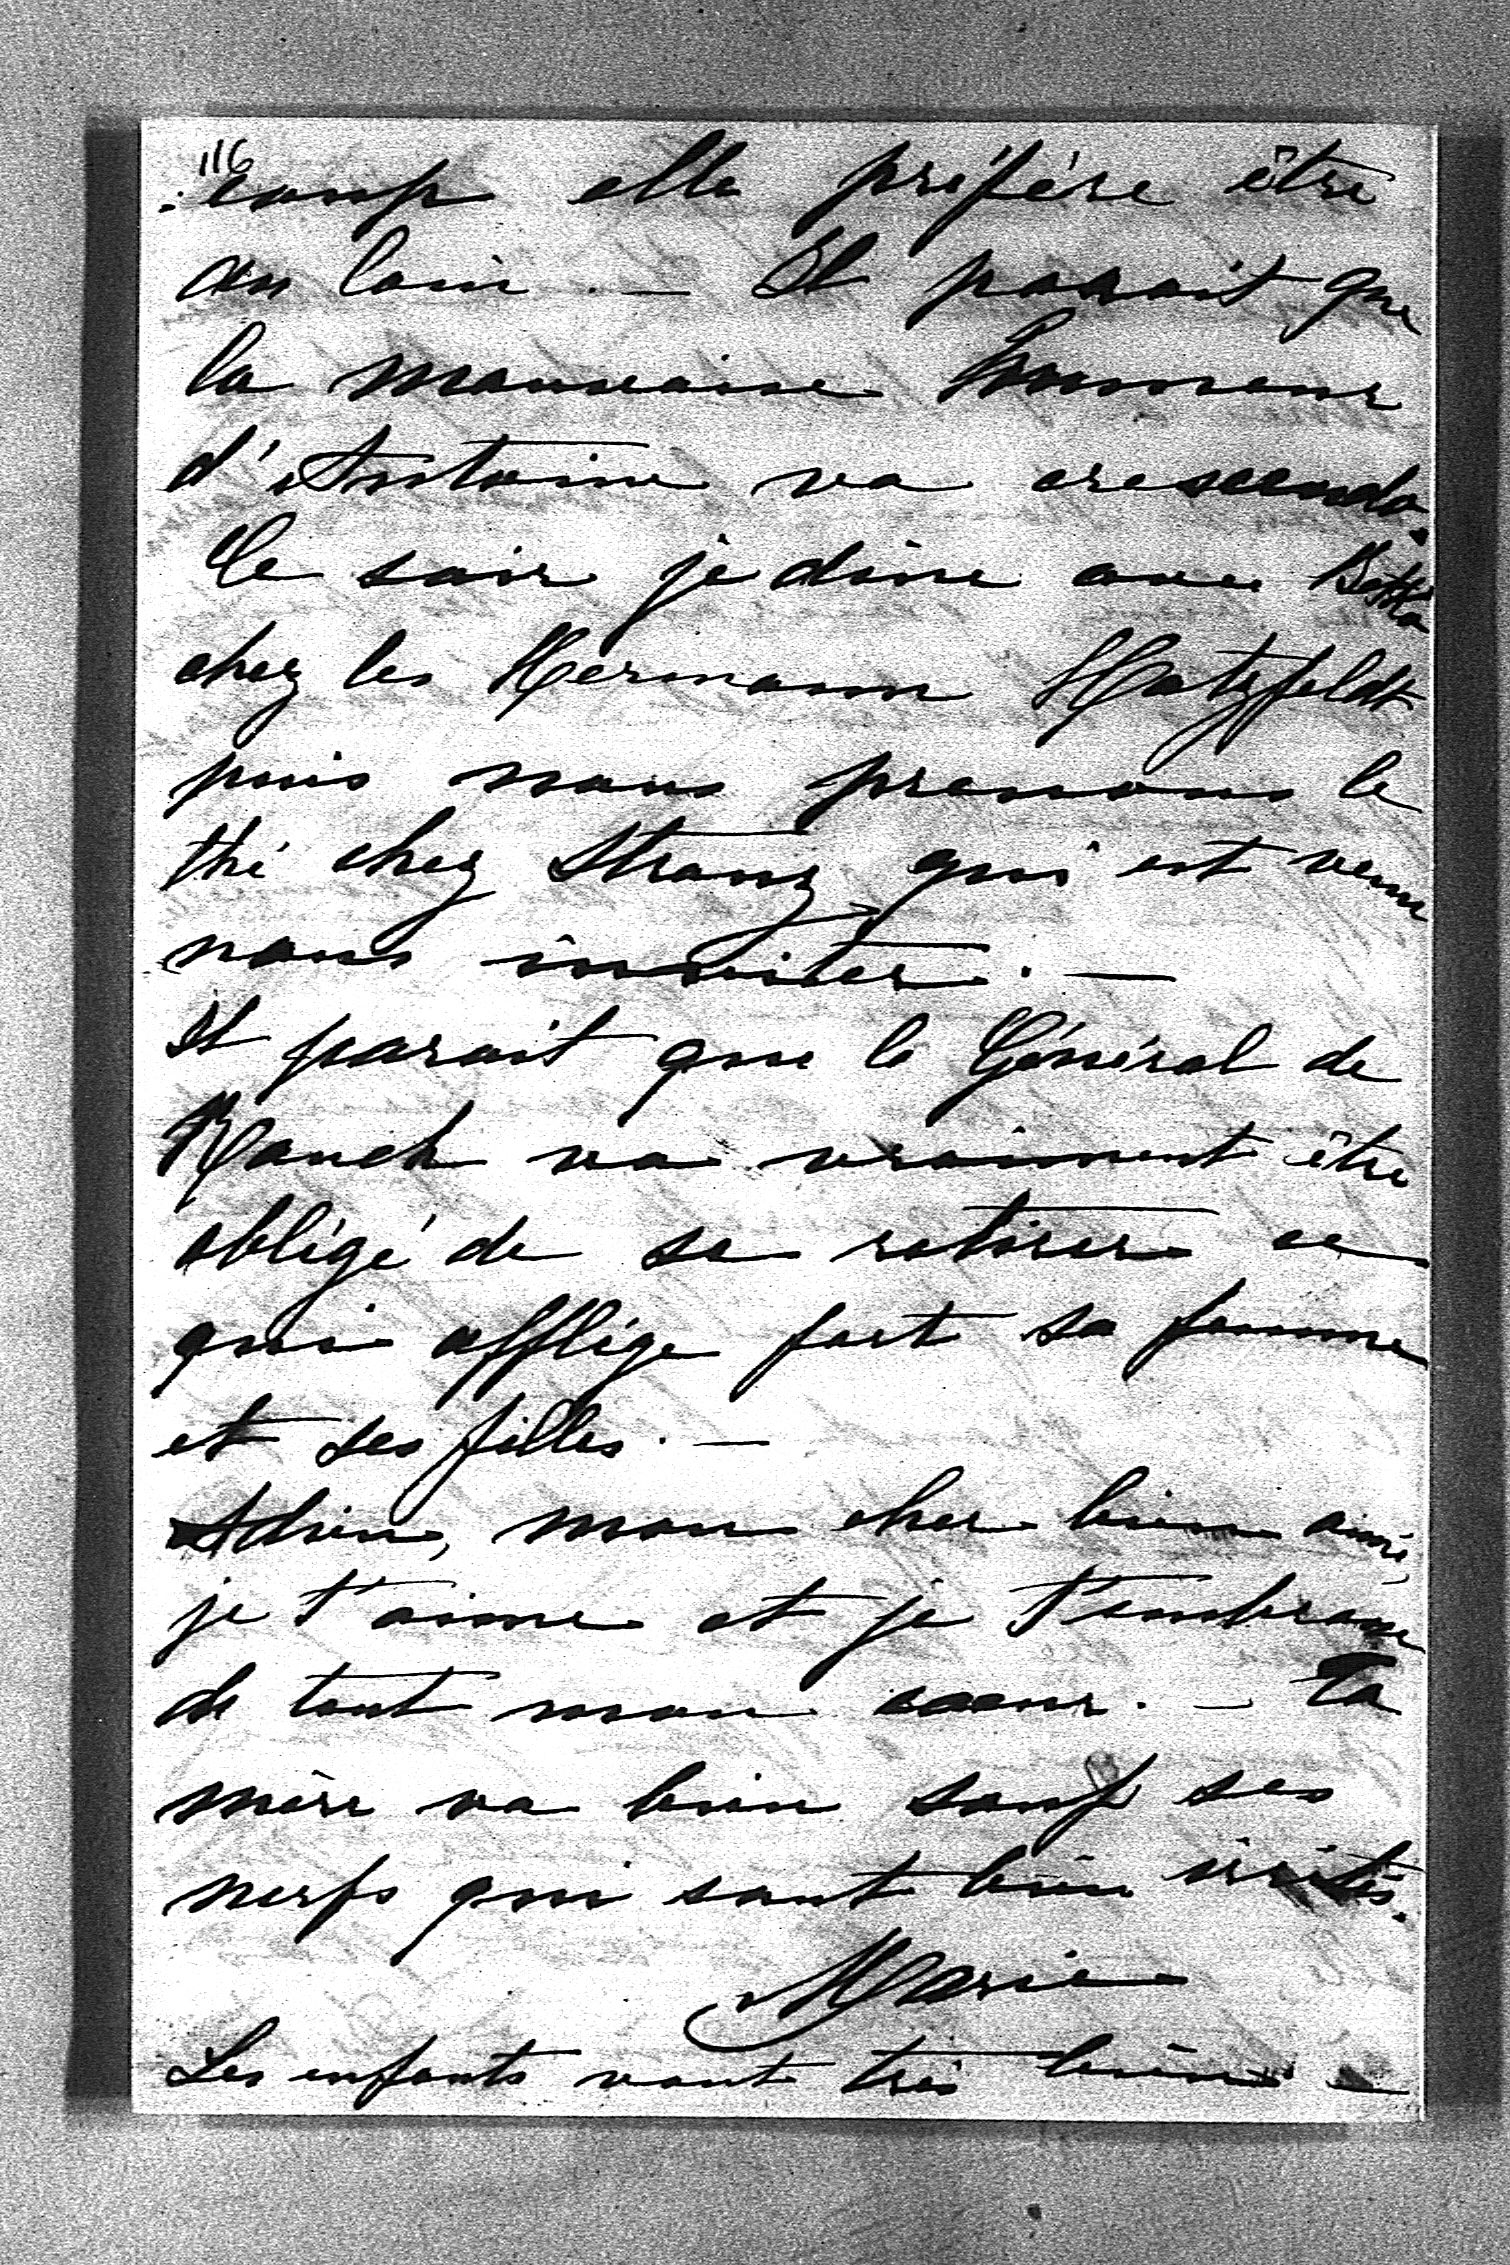 116
: coup elle préfère être
au loin. — Il parait que
la mauvaise humeur
d'Antoine va crescendo.
Ce soir je dine avec Betka
chez les Hermann Hatzfeldt
puis nous prenons le
thé chez Stranz qui est venu
nous inviter. —
Il parait que le Général de
Rauch va vraiment être
obligé de se retirer ce
qui afflige fort sa femme
et ses filles. —
Adieu, mon cher bien aimé,
je t'aime et je t'embrasse
de tout mon coeur. — Ta
mère va bien sauf ses
nerfs qui sont bien irités.
Marie
Les enfants vont très bien —